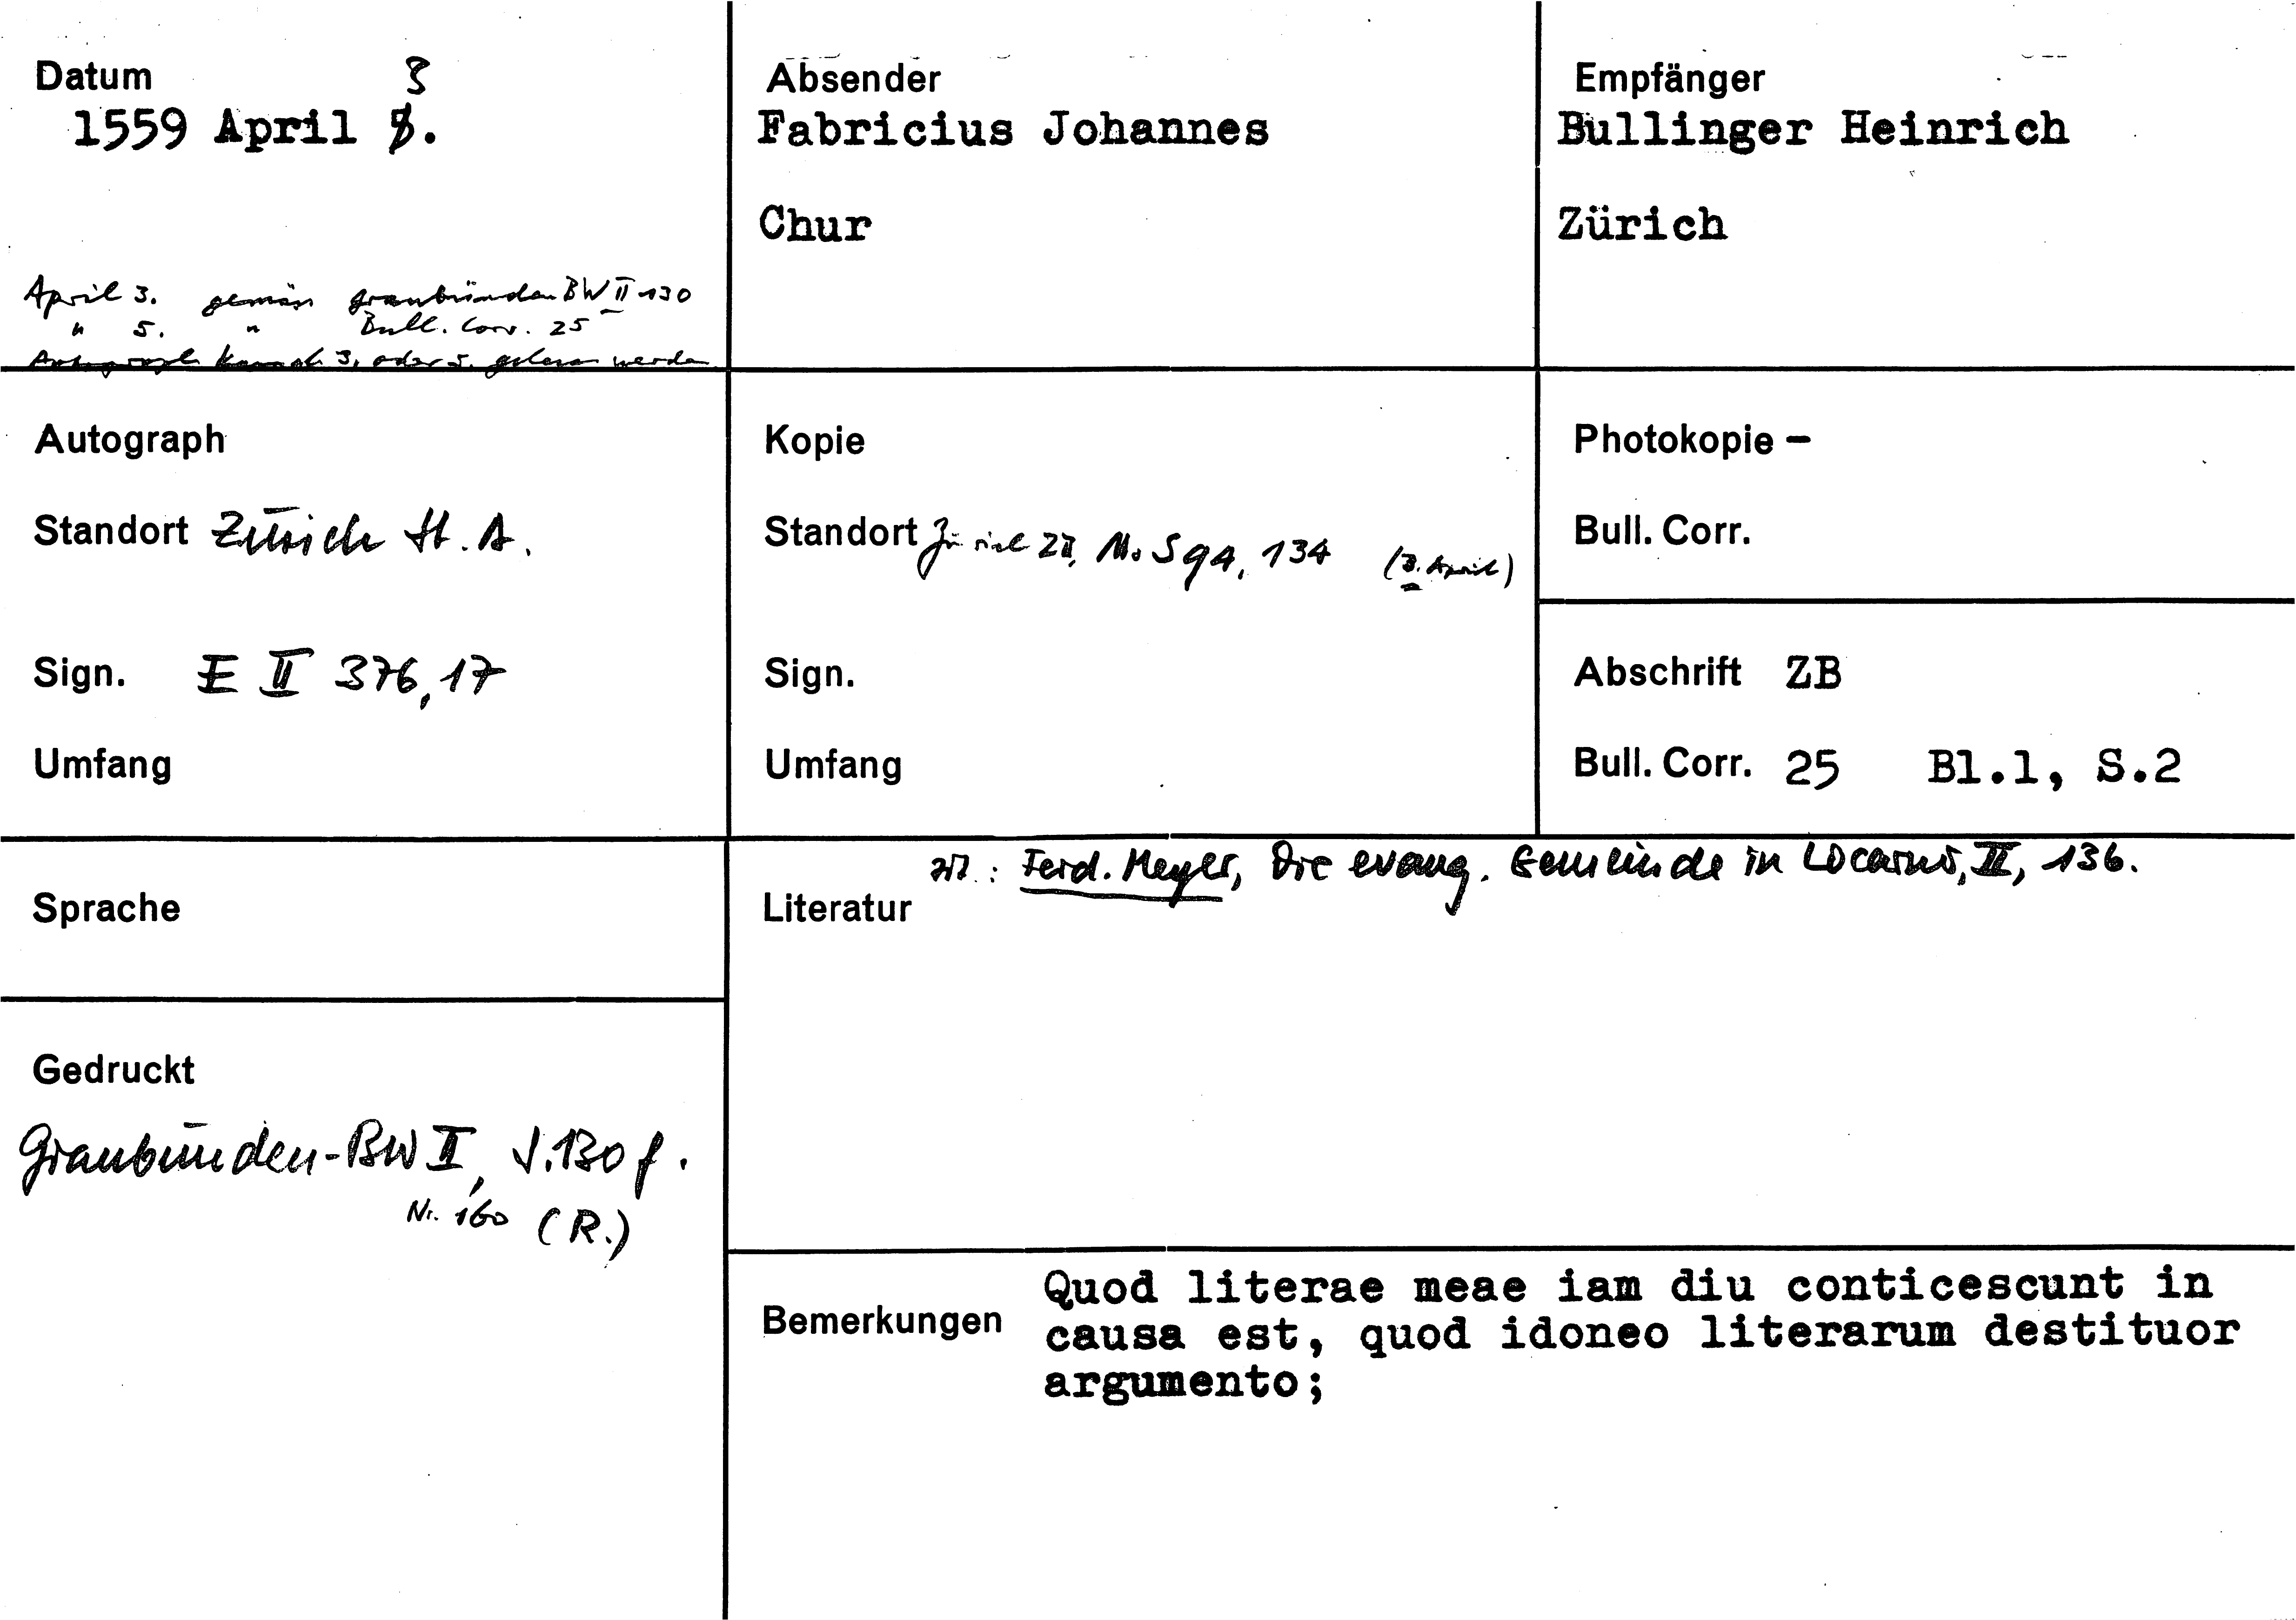 Datum 3
1559 April 5.
April 3. gemäss Graubünden BW II 130
" 5. " Bull. Corr. 25
Autograph kann als 3. oder 5. gelesen werden
Absender
Fabricius Johannes
Chur
Empfänger
Bullinger Heinrich
Zürich
Autograph
Standort Zürich St. A.
Sign. E II 376,17
Umfang
Kopie
Standort Zürich ZB, Ms S 94, 134 (3. April)
Sign.
Umfang
Photokopie –
Bull. Corr.
Abschrift ZB
Bull. Corr. 25 Bl.1, S.2
Sprache
Gedruckt
Graubünden-BW II, S.130 f.
Nr. 160 (R.)
zit.: Ferd. Meyer, Die evang. Gemeinde in Locarno, II, 136.
Literatur
Bemerkungen
Quod literae meae iam diu conticescunt in
causa est, quod idoneo literarum destituor
argumento;